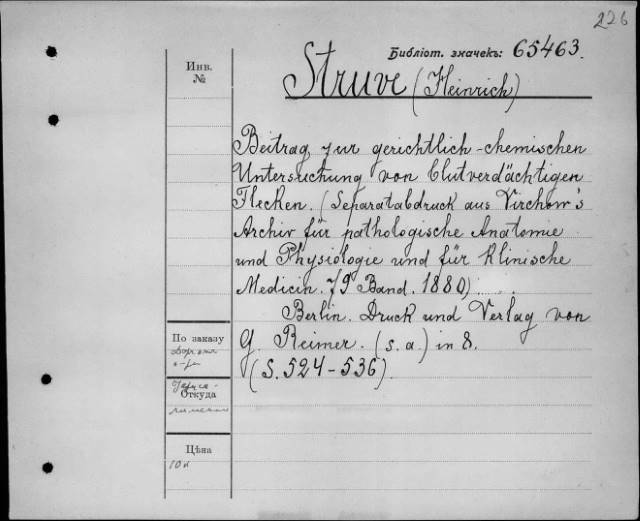 226
Библіот. значекъ: 65463.
Инв.
№
Struve (Heinrich)
Beitrag zur gerichtlich-chemischen
Untersuchung von blutverdächtigen
Flecken. (Separatabdruck aus Virchow's
Archiv für pathologische Anatomie
und Physiologie und für klinische
Medicin. 79 Band. 1880)
Berlin. Druck und Verlag von
G. Reimer. (s. a.) in 8.
(S. 524-536).
По заказу
Откуда
Цѣна
10к